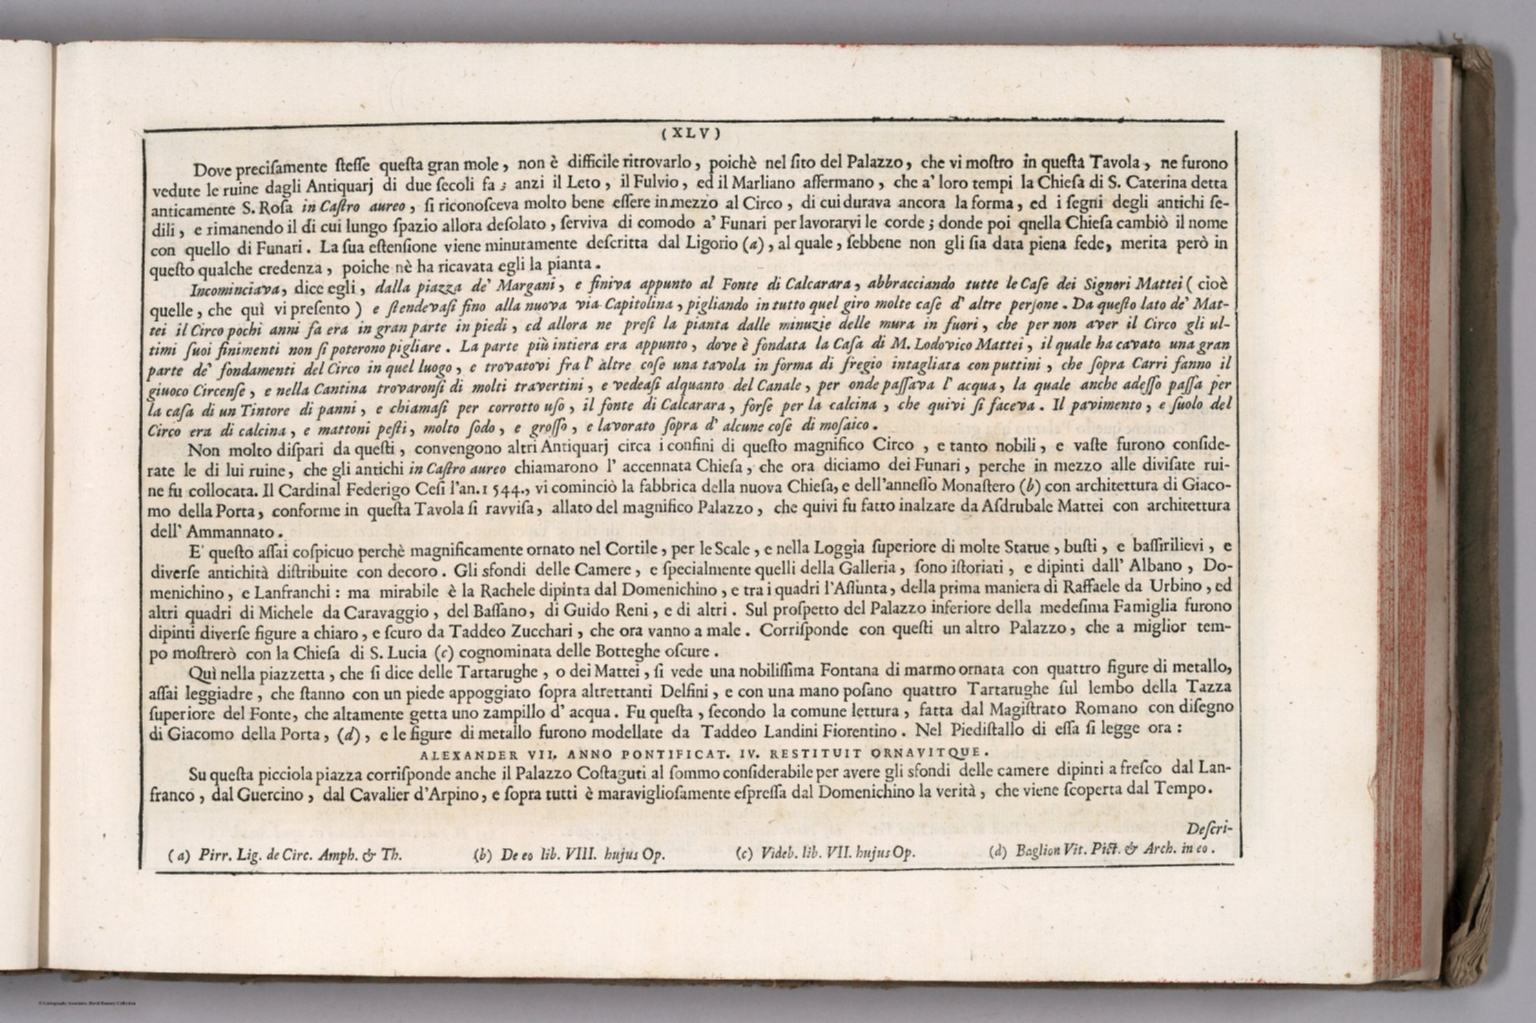 (XLV)
Dove precisamente stesse questa gran mole, non è difficile ritrovarlo, poichè nel sito del Palazzo, che vi mostro in questa Tavola, ne furono
vedute le ruine dagli Antiquarj di due secoli fa; anzi il Leto, il Fulvio, ed il Marliano affermano, che a' loro tempi la Chiesa di S. Caterina detta
anticamente S. Rosa in Castro aureo, si riconosceva molto bene essere in mezzo al Circo, di cui durava ancora la forma, ed i segni degli antichi se-
dili, e rimanendo il di cui lungo spazio allora desolato, serviva di comodo a' Funari per lavorarvi le corde; donde poi qnella Chiesa cambiò il nome
con quello di Funari. La sua estensione viene minutamente descritta dal Ligorio (a), al quale, sebbene non gli sia data piena fede, merita però in
questo qualche credenza, poiche nè ha ricavata egli la pianta.
Incominciava, dice egli, dalla piazza de' Margani, e finiva appunto al Fonte di Calcarara, abbracciando tutte le Case dei Signori Mattei (cioè
quelle, che quì vi presento) e stendevasi fino alla nuova via Capitolina, pigliando in tutto quel giro molte case d' altre persone. Da questo lato de' Mat-
tei il Circo pochi anni fa era in gran parte in piedi, ed allora ne presi la pianta dalle minuzie delle mura in fuori, che per non aver il Circo gli ul-
timi suoi finimenti non si poterono pigliare. La parte più intiera era appunto, dove è fondata la Casa di M. Lodovico Mattei, il quale ha cavato una gran
parte de' fondamenti del Circo in quel luogo, e trovatovi fra l' altre cose una tavola in forma di fregio intagliata con puttini, che sopra Carri fanno il
giuoco Circense, e nella Cantina trovaronsi di molti travertini, e vedeasi alquanto del Canale, per onde passava l' acqua, la quale anche adesso passa per
la casa di un Tintore di panni, e chiamasi per corrotto uso, il fonte di Calcarara, forse per la calcina, che quivi si faceva. Il pavimento, e suolo del
Circo era di calcina, e mattoni pesti, molto sodo, e grosso, e lavorato sopra d' alcune cose di mosaico.
Non molto dispari da questi, convengono altri Antiquarj circa i confini di questo magnifico Circo, e tanto nobili, e vaste furono conside-
rate le di lui ruine, che gli antichi in Castro aureo chiamarono l' accennata Chiesa, che ora diciamo dei Funari, perche in mezzo alle divisate rui-
ne fu collocata. Il Cardinal Federigo Cesi l'an. 1544., vi cominciò la fabbrica della nuova Chiesa, e dell'annesso Monastero (b) con architettura di Giaco-
mo della Porta, conforme in questa Tavola si ravvisa, allato del magnifico Palazzo, che quivi fu fatto inalzare da Asdrubale Mattei con architettura
dell' Ammannato.
E' questo assai cospicuo perchè magnificamente ornato nel Cortile, per le Scale, e nella Loggia superiore di molte Statue, busti, e bassirilievi, e
diverse antichità distribuite con decoro. Gli sfondi delle Camere, e specialmente quelli della Galleria, sono istoriati, e dipinti dall' Albano, Do-
menichino, e Lanfranchi: ma mirabile è la Rachele dipinta dal Domenichino, e tra i quadri l'Assunta, della prima maniera di Raffaele da Urbino, ed
altri quadri di Michele da Caravaggio, del Bassano, di Guido Reni, e di altri. Sul prospetto del Palazzo inferiore della medesima Famiglia furono
dipinti diverse figure a chiaro, e scuro da Taddeo Zucchari, che ora vanno a male. Corrisponde con questi un altro Palazzo, che a miglior tem-
po mostrerò con la Chiesa di S. Lucia (c) cognominata delle Botteghe oscure.
Quì nella piazzetta, che si dice delle Tartarughe, o dei Mattei, si vede una nobilissima Fontana di marmo ornata con quattro figure di metallo,
assai leggiadre, che stanno con un piede appoggiato sopra altrettanti Delfini, e con una mano posano quattro Tartarughe sul lembo della Tazza
superiore del Fonte, che altamente getta uno zampillo d' acqua. Fu questa, secondo la comune lettura, fatta dal Magistrato Romano con disegno
di Giacomo della Porta, (d), e le figure di metallo furono modellate da Taddeo Landini Fiorentino. Nel Piedistallo di essa si legge ora:
ALEXANDER VII. ANNO PONTIFICAT. IV. RESTITUIT ORNAVITQUE.
Su questa picciola piazza corrisponde anche il Palazzo Costaguti al sommo considerabile per avere gli sfondi delle camere dipinti a fresco dal Lan-
franco, dal Guercino, dal Cavalier d'Arpino, e sopra tutti è maravigliosamente espressa dal Domenichino la verità, che viene scoperta dal Tempo.
Descri-
(a) Pirr. Lig. de Circ. Amph. & Th. (b) De eo lib. VIII. hujus Op. (c) Videb. lib. VII. hujus Op. (d) Baglion Vit. Pict. & Arch. in eo.
© Cartography Associates, David Rumsey Collection